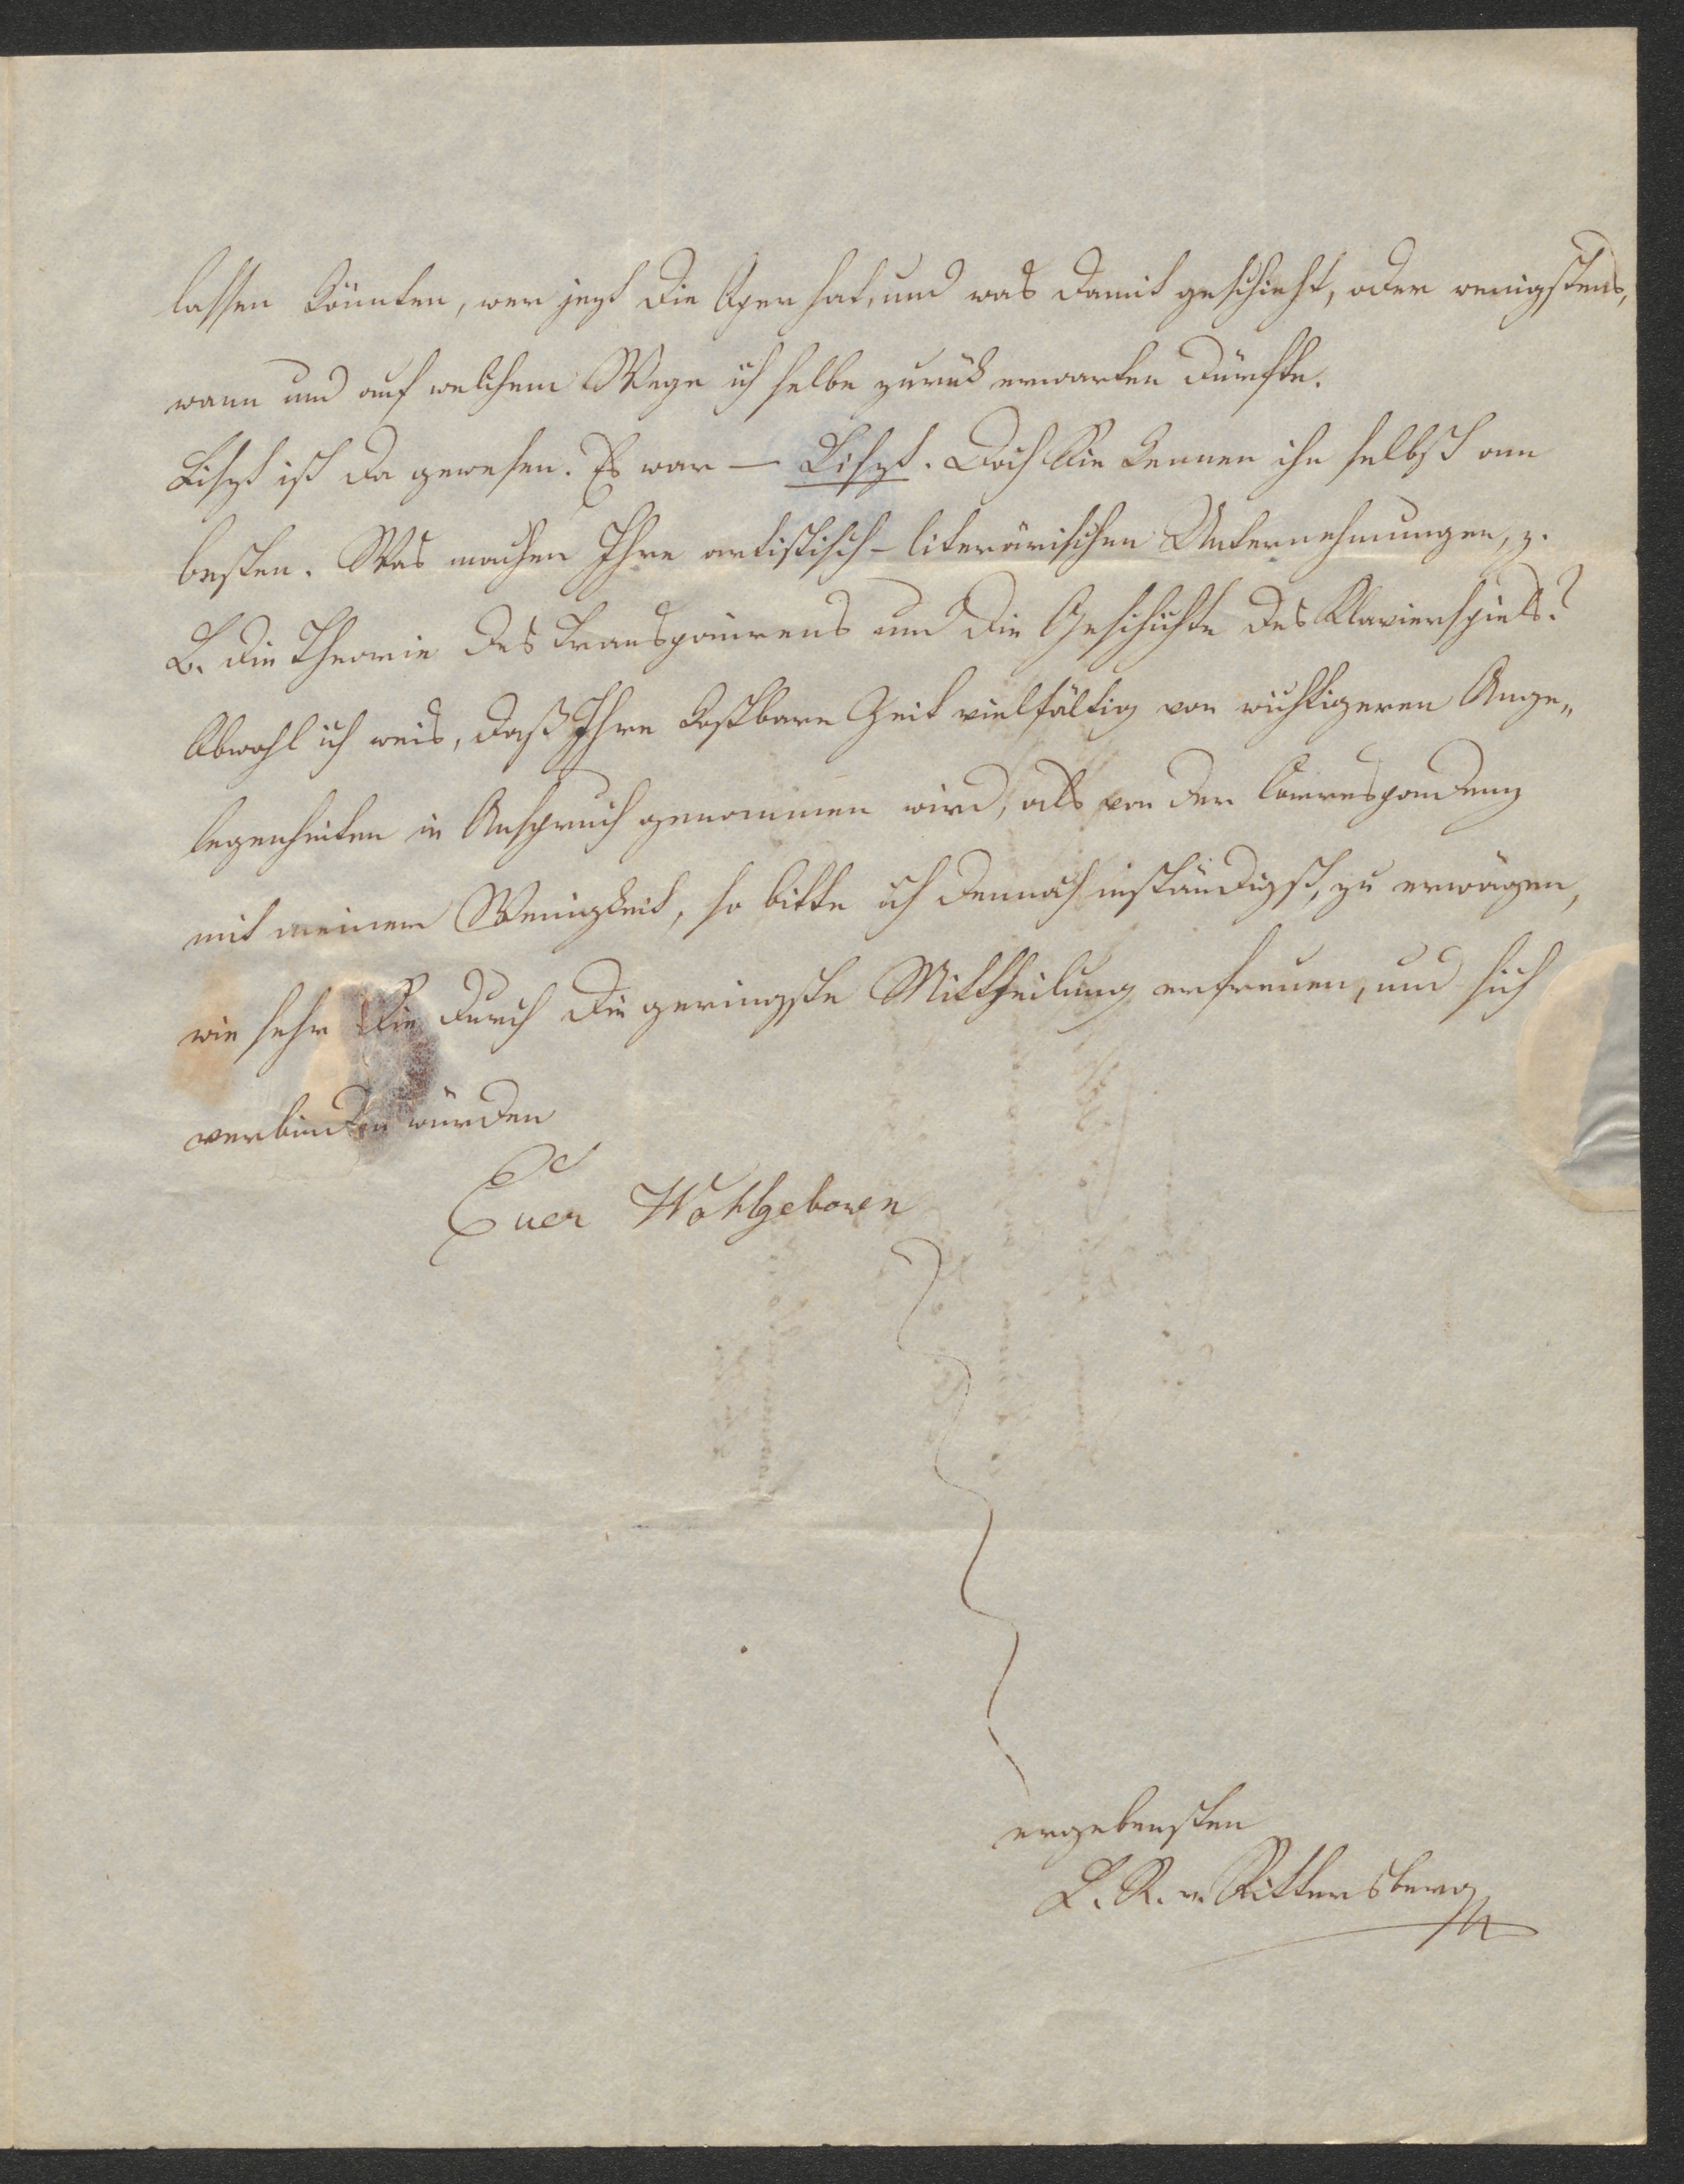 lassen könnten, wer jezt die Oper hat, und was damit geschieht, oder wenigstens,
wann und auf welchem Wege ich selbe zurük erwarten dürfte.
Liszt ist da gewesen. Es war — Liszt. Doch Sie kennen ihn selbst am
besten. Was machen Ihre artistisch-literärischen Unternehmungen, z.
B. die Theorie des Transponirens und die Geschichte des Klavierspiels?
Obwohl ich weis, daß Ihre kostbare Zeit vielfältig von wichtigeren Ange„
legenheiten in Anspruch genommen wird, als von der Correspondenz
mit meiner Wenigkeit, so bitte ich dennoch inständigst, zu erwägen,
wie sehr Sie durch die geringste Mittheilung erfreuen, und sich
verbinden würden
Euer Wohlgeboren
ergebensten
L. R. v. Rittersberg